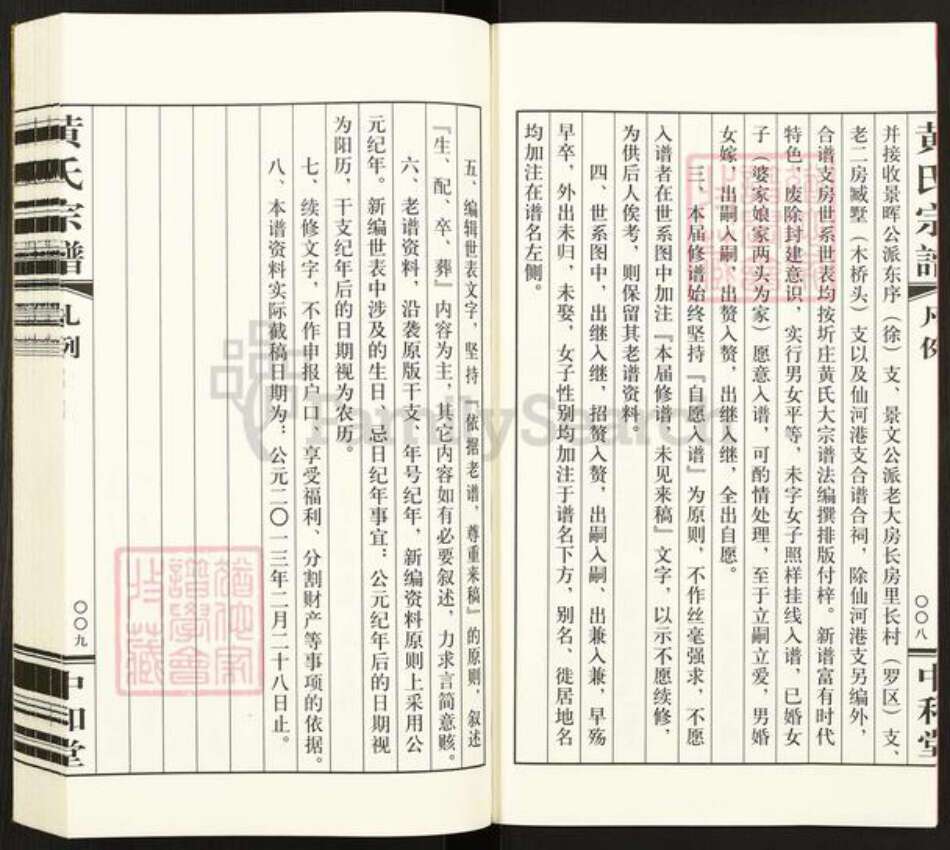 黄氏宗谱
凡例
〇〇八
中和堂
并接收景晖公派东序（徐）支、景文公派老大房长房里长村（罗区）支、
老二房臧墅（木桥头）支以及仙河港支合谱合祠，除仙河港支另编外，
合谱支房世系世表均按圻庄黄氏大宗谱法编撰排版付梓。新谱富有时代
特色，废除封建意识，实行男女平等，未字女子照样挂线入谱，已婚女
子（婆家娘家两头为家）愿意入谱，可酌情处理，至于立嗣立爱，男婚
女嫁，出嗣入嗣，出赘入赘，出继入继，全出自愿。
三、本届修谱始终坚持『自愿入谱』为原则，不作丝毫强求，不愿
入谱者在世系图中加注『本届修谱，未见来稿』文字，以示不愿续修，
为供后人俟考，则保留其老谱资料。
四、世系图中，出继入继，招赘入赘，出嗣入嗣、出兼入兼，早殇
早卒，外出未归，未娶，女子性别均加注于谱名下方，别名、徙居地名
均加注在谱名左侧。
五、编辑世表文字，坚持『依据老谱，尊重来稿』的原则，叙述
『生、配、卒、葬』内容为主，其它内容如有必要叙述，力求言简意赅。
六、老谱资料，沿袭原版干支、年号纪年，新编资料原则上采用公
元纪年。新编世表中涉及的生日、忌日纪年事宜：公元纪年后的日期视
为阳历，干支纪年后的日期视为农历。
七、续修文字，不作申报户口、享受福利、分割财产等事项的依据。
八、本谱资料实际截稿日期为：公元二〇一三年二月二十八日止。
黄氏宗谱
凡例
〇〇九
中和堂
FamilySearch